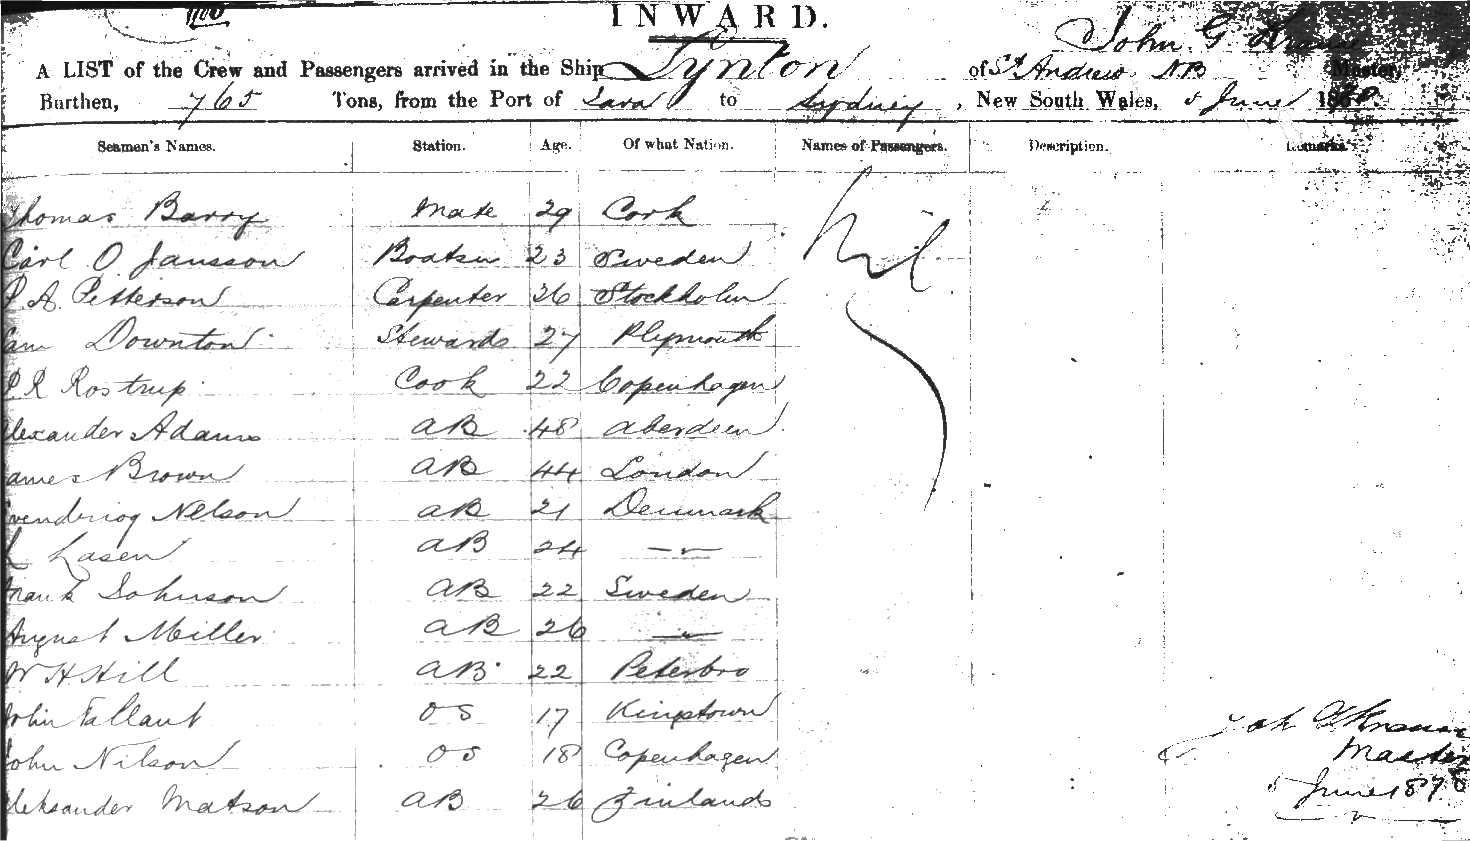 INWARD.
John G
A LIST of the Crew and Passengers arrived in the Ship Lynton of St Andrews NB Master,
Burthen, 765 Tons, from the Port of Java to Sydney, New South Wales, 5 June 18
Seamen's Names. Station. Age. Of what Nation. Names of Passengers. Description. Remarks.
Thomas Barry Mate 29 Cork Nil
Carl O Jansson Boatsn 23 Sweden
P A Petterson Carpenter 26 Stockholm
Sam Downton Stewards 27 Plymouth
P R Rostrup Cook 22 Copenhagen
Alexander Adams AB 48 Aberdeen
James Brown AB 44 London
Nelson AB 21 Denmark
L Lasen AB 24 —〃—
Frank Johnson AB 22 Sweden
August Miller AB 26 —〃—
W H Hill AB 22 Peterbro
John Tallant OS 17 Kingstown
John Nilson OS 18 Copenhagen
Aleksander Matson AB 26 Finlands
Joh G
Master
5 June 1878